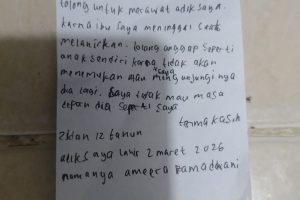 tolong untuk merawat adik saya.
karna ibu saya meninggal saat
melahirkan. tolong anggap seperti
anak sendiri karna tidak akan
menemukan atau mengunjungi nya
saya
dia lagi. Saya tidak mau masa
depan dia seperti saya
terima kasih
Zidan 12 tahun
adik saya lahir 2 maret 2026
namanya ameera ramadhani